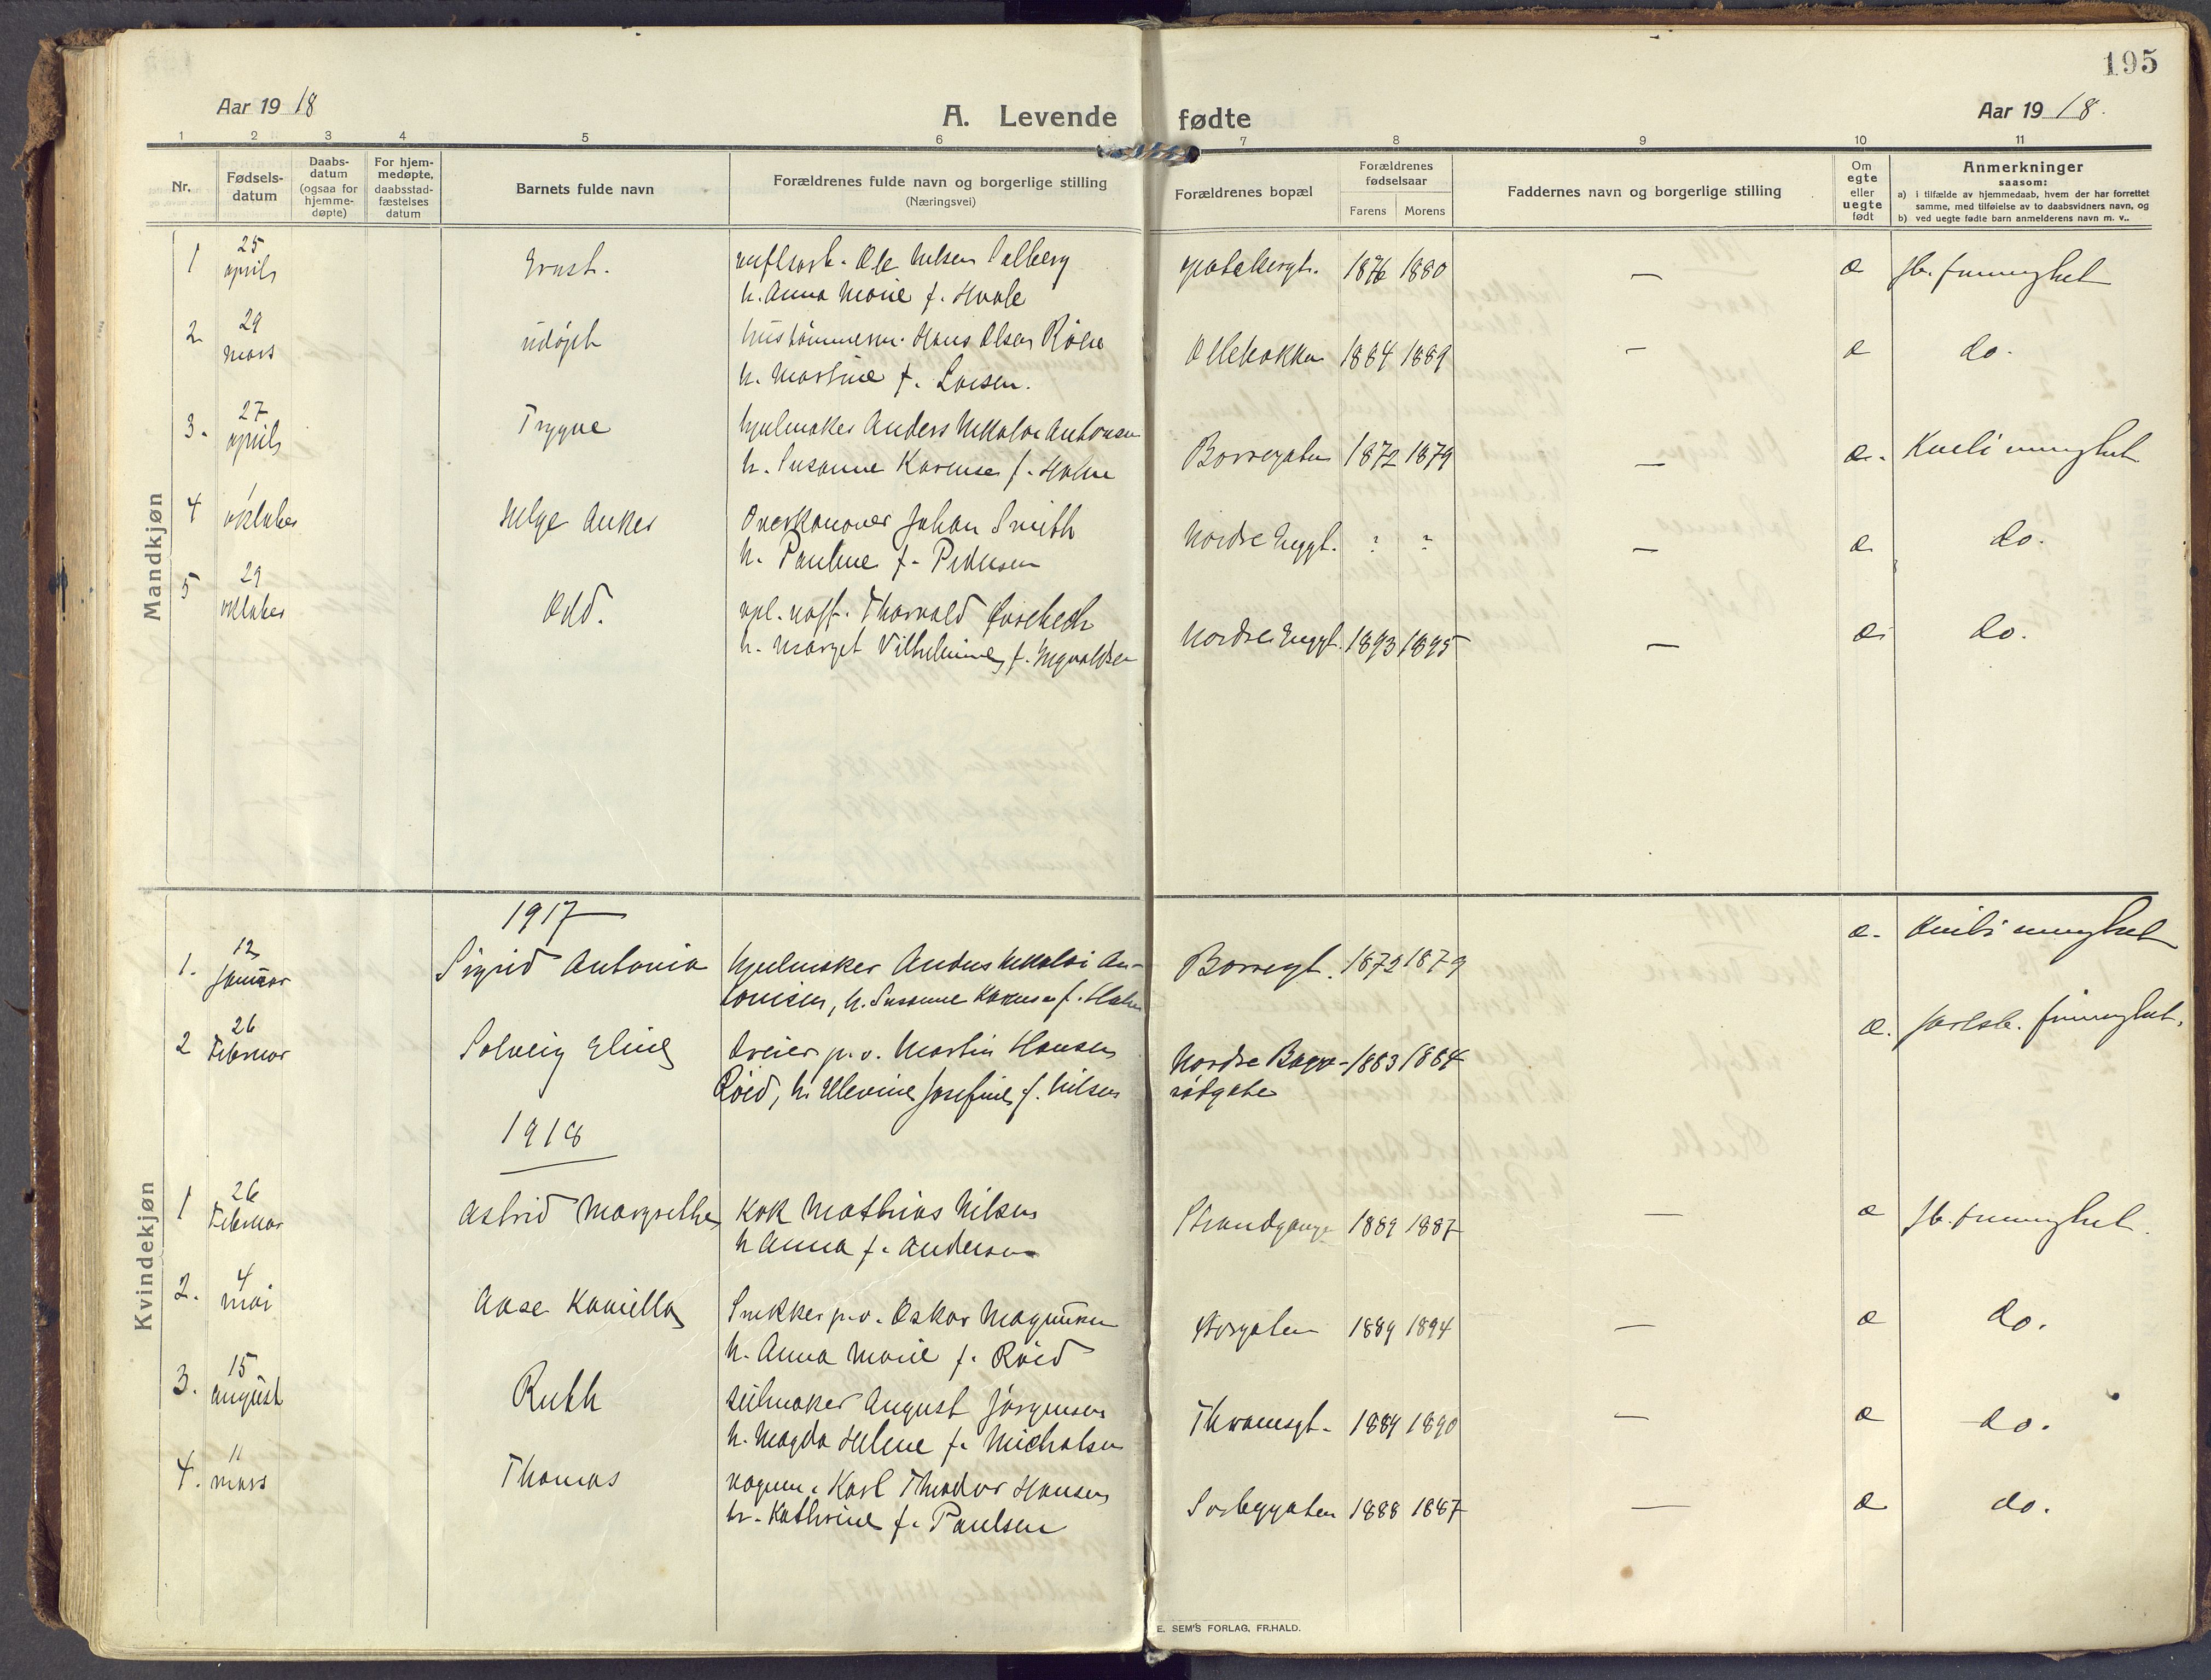 195
Aar 19 18
A. Levende fødte
Aar 19 18.
1 2 3 4 5 6 7 8 9 10 11
Nr.
Fødsels-
datum
Daabs-
datum
(ogsaa for
hjemme-
døpte)
For hjem-
medøpte,
daabsstad-
fæstelses
datum
Barnets fulde navn
Forældrenes fulde navn og borgerlige stilling
(Næringsvei)
Forældrenes bopæl
Forældrenes
fødselsaar
Farens Morens
Faddernes navn og borgerlige stilling
Om
egte
eller
uegte
født
Anmerkninger
saasom:
a) i tilfælde av hjemmedaab, hvem der har forrettet
samme, med tilføielse av to daabsvidners navn, og
b) ved uegte fødte barn anmelderens navn m. v..
Mandkjøn
1 25 april Ernst. Ole Nilsen Solberg 1876 1880 — æ
h. Anna Marie f. Hvale
2 29 mars udøpt Hans Olsen Røed Ollebakken 1884 1889 — æ do.
h. Martine f. Larsen.
3. 27 april Trygve hjulmaker Anders Nikolai Antonsen Borregaten 1872 1879 — æ.
h. Susanne Karense f. Holm
4 1 oktober Helge Anker Johan Smith Nordre Enggt. ? ? — æ do.
h. Pauline f. Pedersen
5 29 oktober Odd. Thorvald Nordre Enggt. 1893 1895 — æ do.
h. Marget Vilhelmine f. Ingvaldsen
Kvindekjøn
1917
1. 12 Januar Sigrid Antonia hjulmaker Anders Nikolai An- Borregt. 1872 1879 æ.
tonisen, h. Susanne Karense f. Holm
2 26 Februar Solveig Eline Dreier p. v. Martin Hansen Nordre Bagge- 1883 1884 æ.
Røed, h. Josefine f. Nilsen rødgate
1918
1 26 Februar Astrid Margrethe Kok Mathias Nilsen 1889 1887 — æ
h Anna f. Anderson
2. 4 mai Aase Kamilla Snekker p. v. Oskar Magnusen Storgaten 1889 1894 — æ do.
h. Anna Marie f. Røed
3. 15 august Ruth seilmaker August Jørgensen Thranesgt. 1889 1890 — æ do.
h. Magda Helene f. Michalsen
4. 11 mars Thomas Karl Theodor Hansen 1888 1887 — æ do.
h. Kathrine f. Paulsen
E. SEM'S FORLAG, FR.HALD.